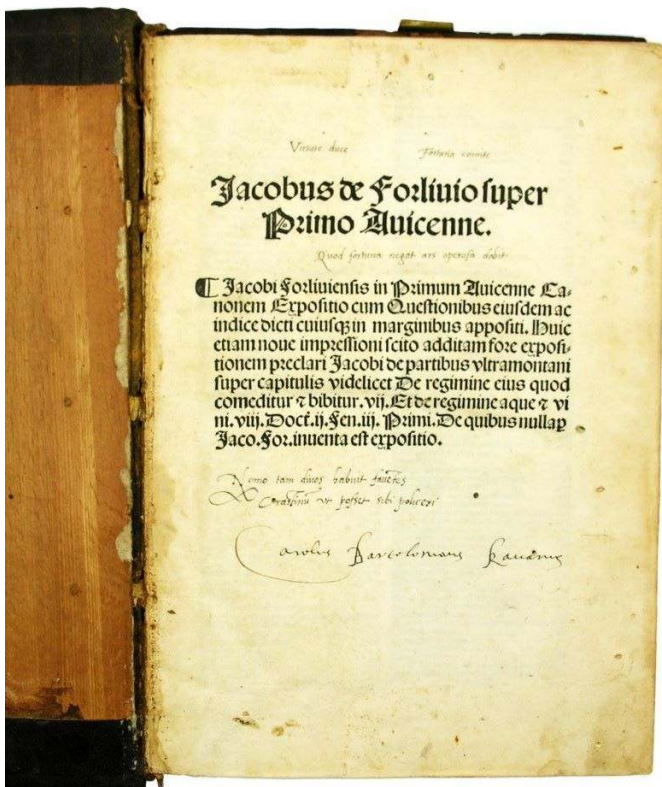 Virtute duce Fortuna comite
Jacobus de Forliuio super
Primo Auicenne.
Quod fortuna negat ars operosa dabit
¶ Jacobi Forliuiensis in Primum Auicenne Ca-
nonem Expositio cum Questionibus eiusdem ac
indice dicti cuiusqꝫ in marginibus appositi. Huic
etiam noue impressioni scito additam fore exposi-
tionem preclari Jacobi de partibus vltramontani
super capitulis videlicet De regimine eius quod
comeditur ⁊ bibitur. vij. Et de regimine aque ⁊ vi
ni. viij. Doct. ij. Fen. iij. Primi. De quibus nullaꝫ
Jaco. For. inuenta est expositio.
Nemo tam diuos habuit fauẽtes
Crastinũ vt posset sibi polliceri
Carolus Bartolomaeus